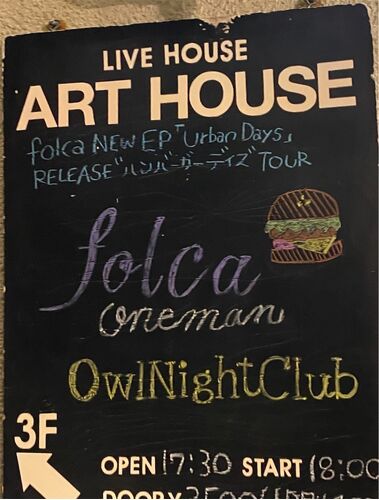 LIVE HOUSE
ART HOUSE
folca NEW EP「Urban Days」
RELEASE "ハンバーガーデイズ" TOUR
folca
oneman
OwlNightClub
3F
OPEN 17:30 START 18:00
DOOR ¥3500